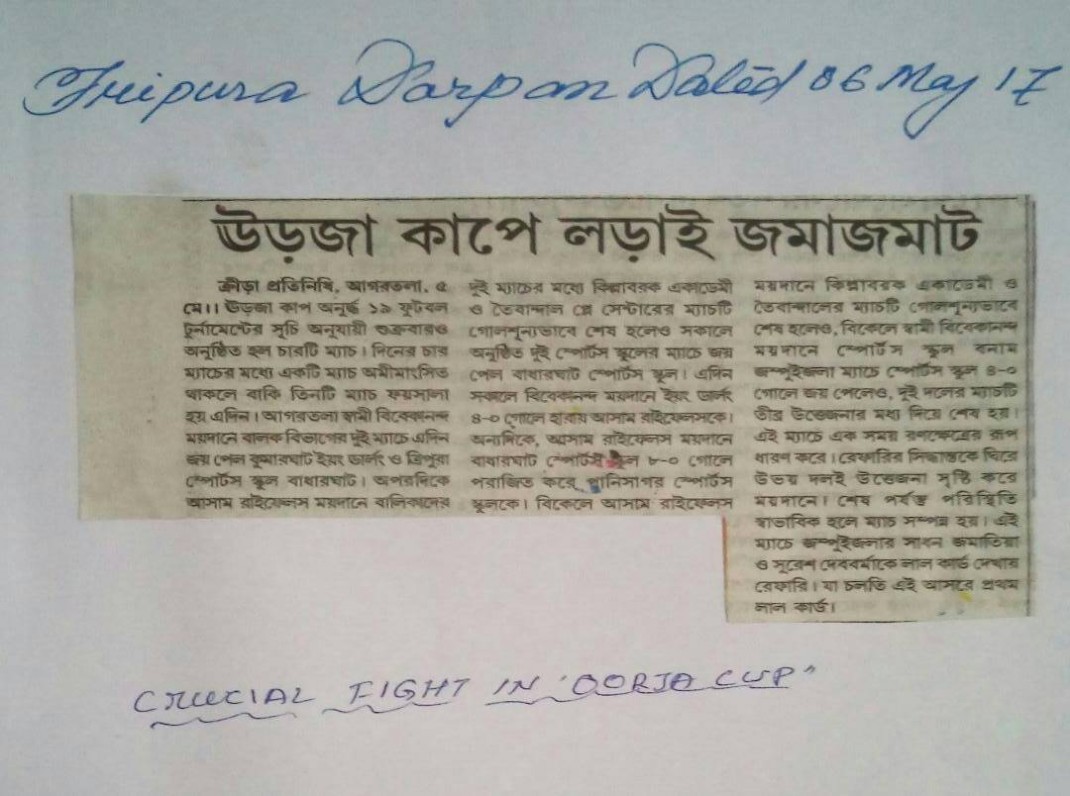 Tripura Darpan Dated 06 May 17
উড়জা কাপে লড়াই জমাজমাট
ক্রীড়া প্রতিনিধি, আগরতলা, ৫
মে।। উড়জা কাপ অনূর্দ্ধ ১৯ ফুটবল
টুর্নামেন্টের সূচি অনুযায়ী শুক্রবারও
অনুষ্ঠিত হল চারটি ম্যাচ। দিনের চার
ম্যাচের মধ্যে একটি ম্যাচ অমীমাংসিত
থাকলে বাকি তিনটি ম্যাচ ফয়সালা
হয় এদিন। আগরতলা স্বামী বিবেকানন্দ
ময়দানে বালক বিভাগের দুই ম্যাচে এদিন
জয় পেল কুমারঘাট ইয়ং জার্নি ও ত্রিপুরা
স্পোর্টস স্কুল বাধারঘাট। অপরদিকে
আসাম রাইফেলস ময়দানে বালিকাদের
দুই ম্যাচের মধ্যে কিল্লাবরক একাডেমী
ও তৈবান্দাল প্লে সেন্টারের ম্যাচটি
গোলশূন্যভাবে শেষ হলেও সকালে
অনুষ্ঠিত দুই স্পোর্টস স্কুলের ম্যাচে জয়
পেল বাধারঘাট স্পোর্টস স্কুল। এদিন
সকালে বিবেকানন্দ ময়দানে ইয়ং
৪-০ গোলে হারায় আসাম রাইফেলসকে।
অন্যদিকে, আসাম রাইফেলস ময়দানে
বাধারঘাট স্পোর্টস স্কুল ৮-০ গোলে
পরাজিত করে পানিসাগর স্পোর্টস
স্কুলকে। বিকেলে আসাম রাইফেলস
ময়দানে কিল্লাবরক একাডেমী ও
তৈবান্দালের ম্যাচটি গোলশূন্যভাবে
শেষ হলেও, বিকেলে স্বামী বিবেকানন্দ
ময়দানে স্পোর্টস স্কুল বনাম
জম্পুইজলা ম্যাচে স্পোর্টস স্কুল ৪-০
গোলে জয় পেলেও, দুই দলের ম্যাচটি
তীব্র উত্তেজনার মধ্য দিয়ে শেষ হয়।
এই ম্যাচে এক সময় রণক্ষেত্রের রূপ
ধারণ করে। রেফারির সিদ্ধান্তকে ঘিরে
উভয় দলই উত্তেজনা সৃষ্টি করে
ময়দানে। শেষ পর্যন্ত পরিস্থিতি
স্বাভাবিক হলে ম্যাচ সম্পন্ন হয়। এই
ম্যাচে জম্পুইজলার সাবন জমাতিয়া
ও সুরেশ দেববর্মাকে লাল কার্ড দেখায়
রেফারি। যা চলতি এই আসরে প্রথম
লাল কার্ড।
CRUCIAL FIGHT IN "OORJA CUP"